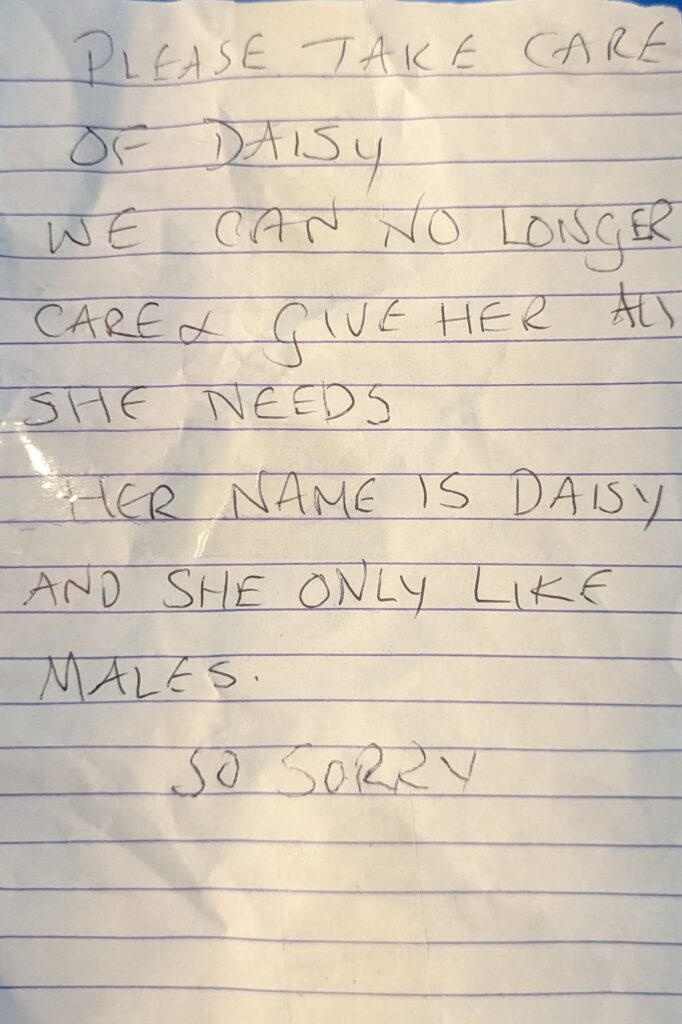 PLEASE TAKE CARE
OF DAISY
WE CAN NO LONGER
CARE & GIVE HER ALL
SHE NEEDS
HER NAME IS DAISY
AND SHE ONLY LIKE
MALES.
SO SORRY